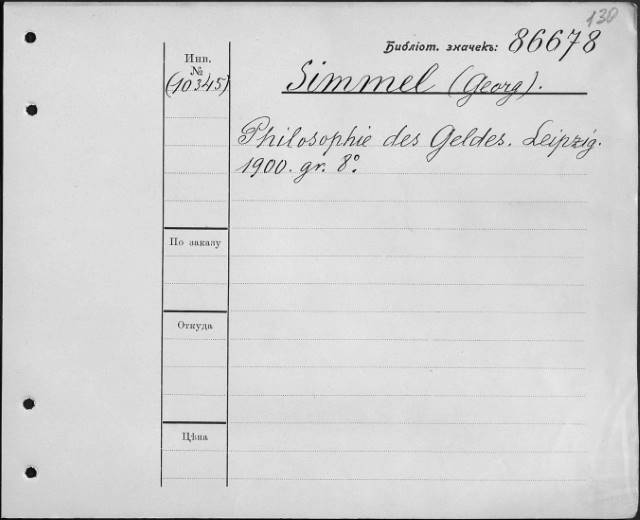 130
Библіот. значекъ: 86678
Инв.
№
(10345)
Simmel (Georg).
Philosophie des Geldes. Leipzig.
1900. gr. 8°.
По заказу
Откуда
Цѣна